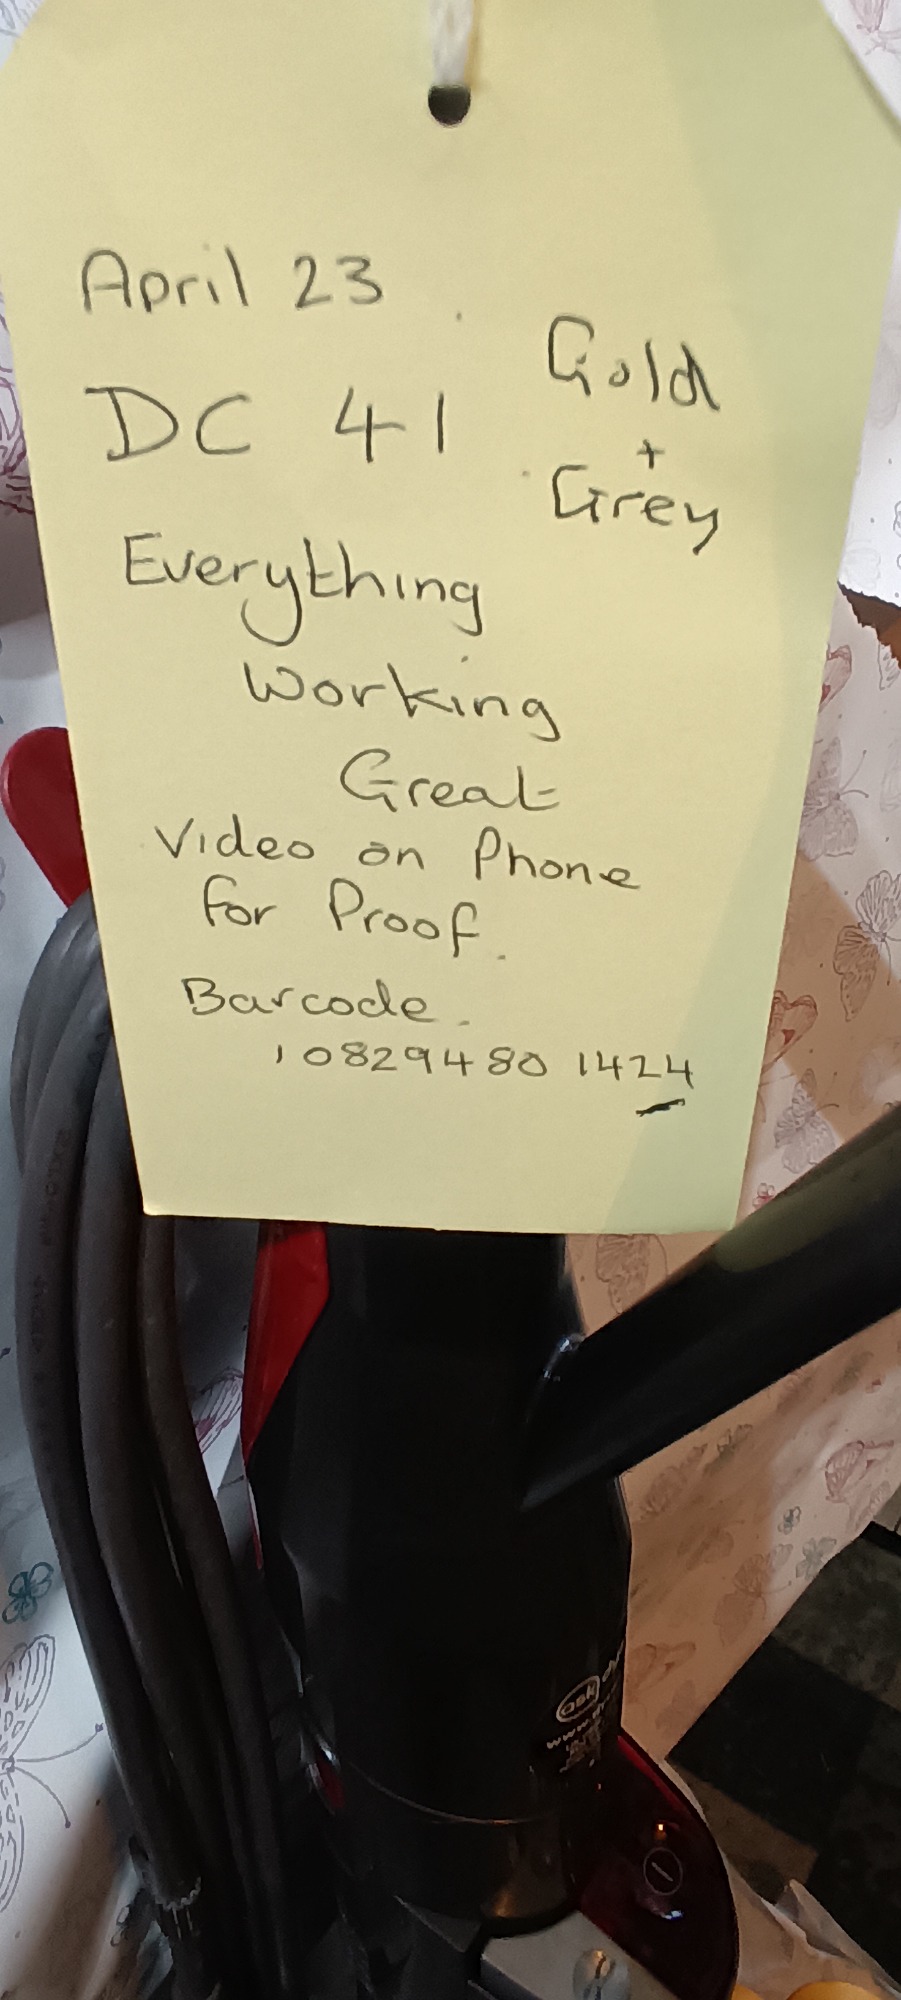 April 23
DC 41
Gold
+
Grey
Everything
Working
Great
Video on Phone
for Proof.
Barcode.
10829480 1424
ask